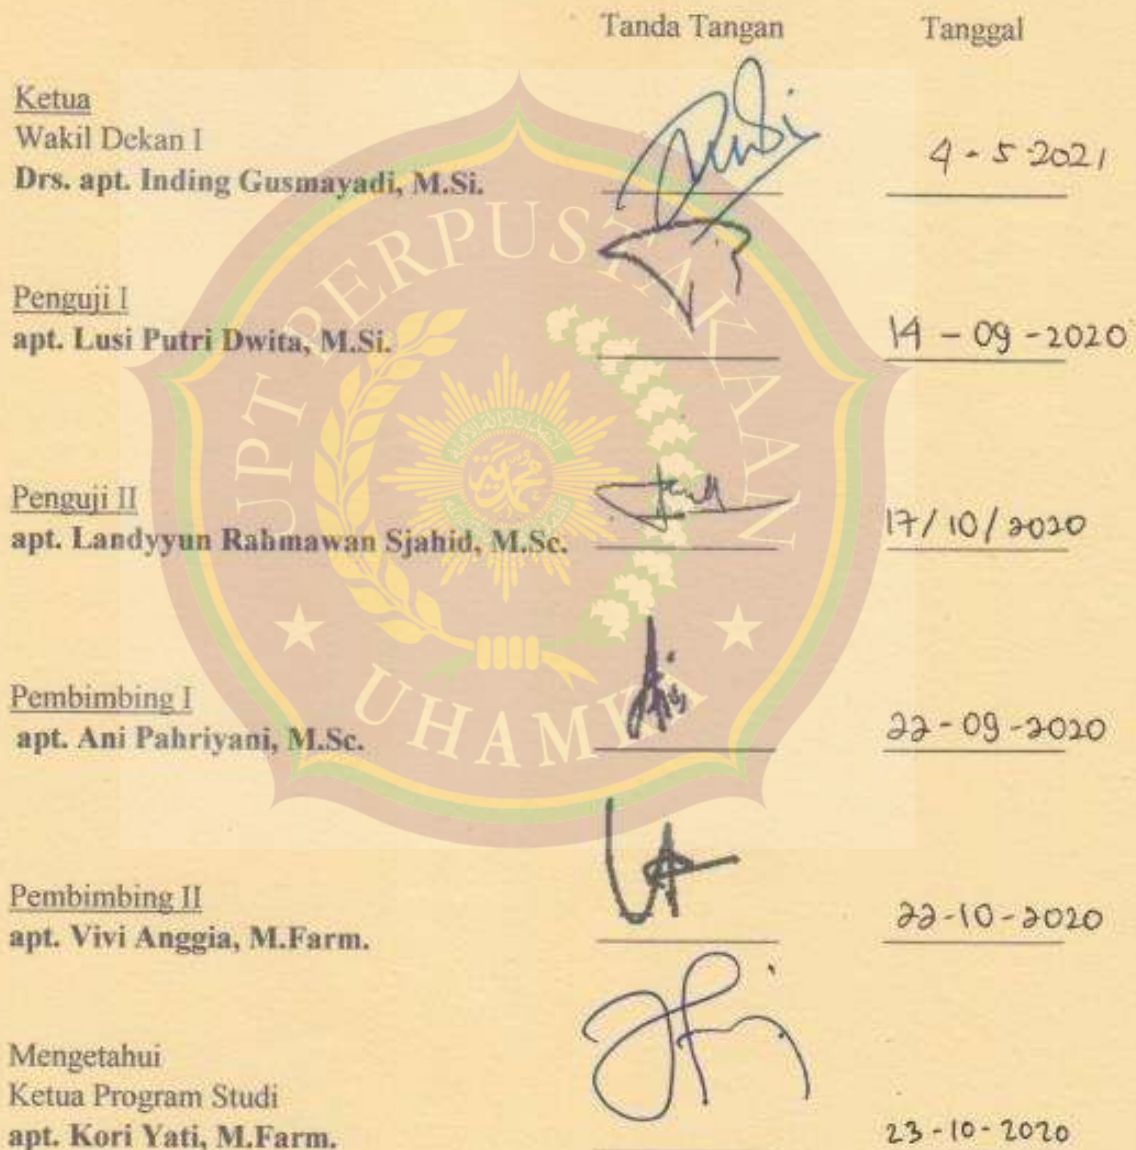 Tanda Tangan Tanggal
Ketua
Wakil Dekan I
Drs. apt. Inding Gusmayadi, M.Si. 4-5-2021
Penguji I
apt. Lusi Putri Dwita, M.Si. 14-09-2020
Penguji II
apt. Landyyun Rahmawan Sjahid, M.Sc. 17/10/2020
Pembimbing I
apt. Ani Pahriyani, M.Sc. 22-09-2020
Pembimbing II
apt. Vivi Anggia, M.Farm. 22-10-2020
Mengetahui
Ketua Program Studi
apt. Kori Yati, M.Farm. 23-10-2020
UPT PERPUSTAKAAN
UHAMKA